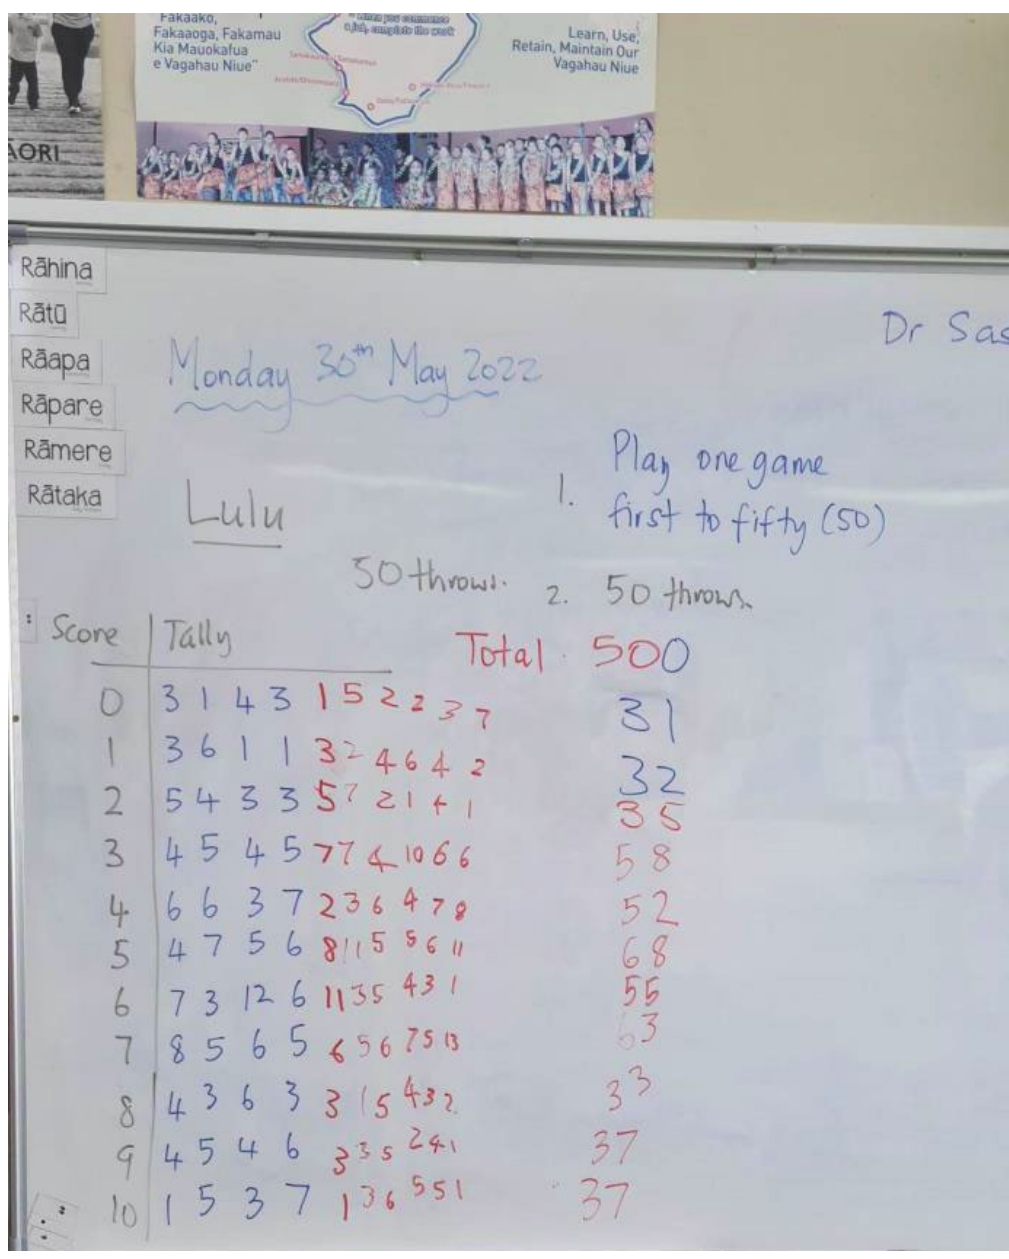 Fakaako,
Fakaaoga, Fakamau
Kia Mauokafua
e Vagahau Niue"
When you commence
a job, complete the work
Learn, Use,
Retain, Maintain Our
Vagahau Niue
Rāhina
Rātū
Rāapa
Rāpare
Rāmere
Rātaka
Dr Sas
Monday 30th May 2022
Lulu
1. Play one game
first to fifty (50)
50 throws.
2. 50 throws.
Score Tally Total 500
0 3 1 4 3 1 5 2 2 3 7 31
1 3 6 1 1 3 2 4 6 4 2 32
2 5 4 3 3 5 7 2 1 4 1 35
3 4 5 4 5 7 7 4 10 6 6 58
4 6 6 3 7 2 3 6 4 7 8 52
5 4 7 5 6 8 11 5 5 6 11 68
6 7 3 12 6 11 3 5 4 3 1 55
7 8 5 6 5 6 5 6 7 5 13 63
8 4 3 6 3 3 1 5 4 3 2 33
9 4 5 4 6 3 3 5 2 4 1 37
10 1 5 3 7 1 3 6 5 5 1 37